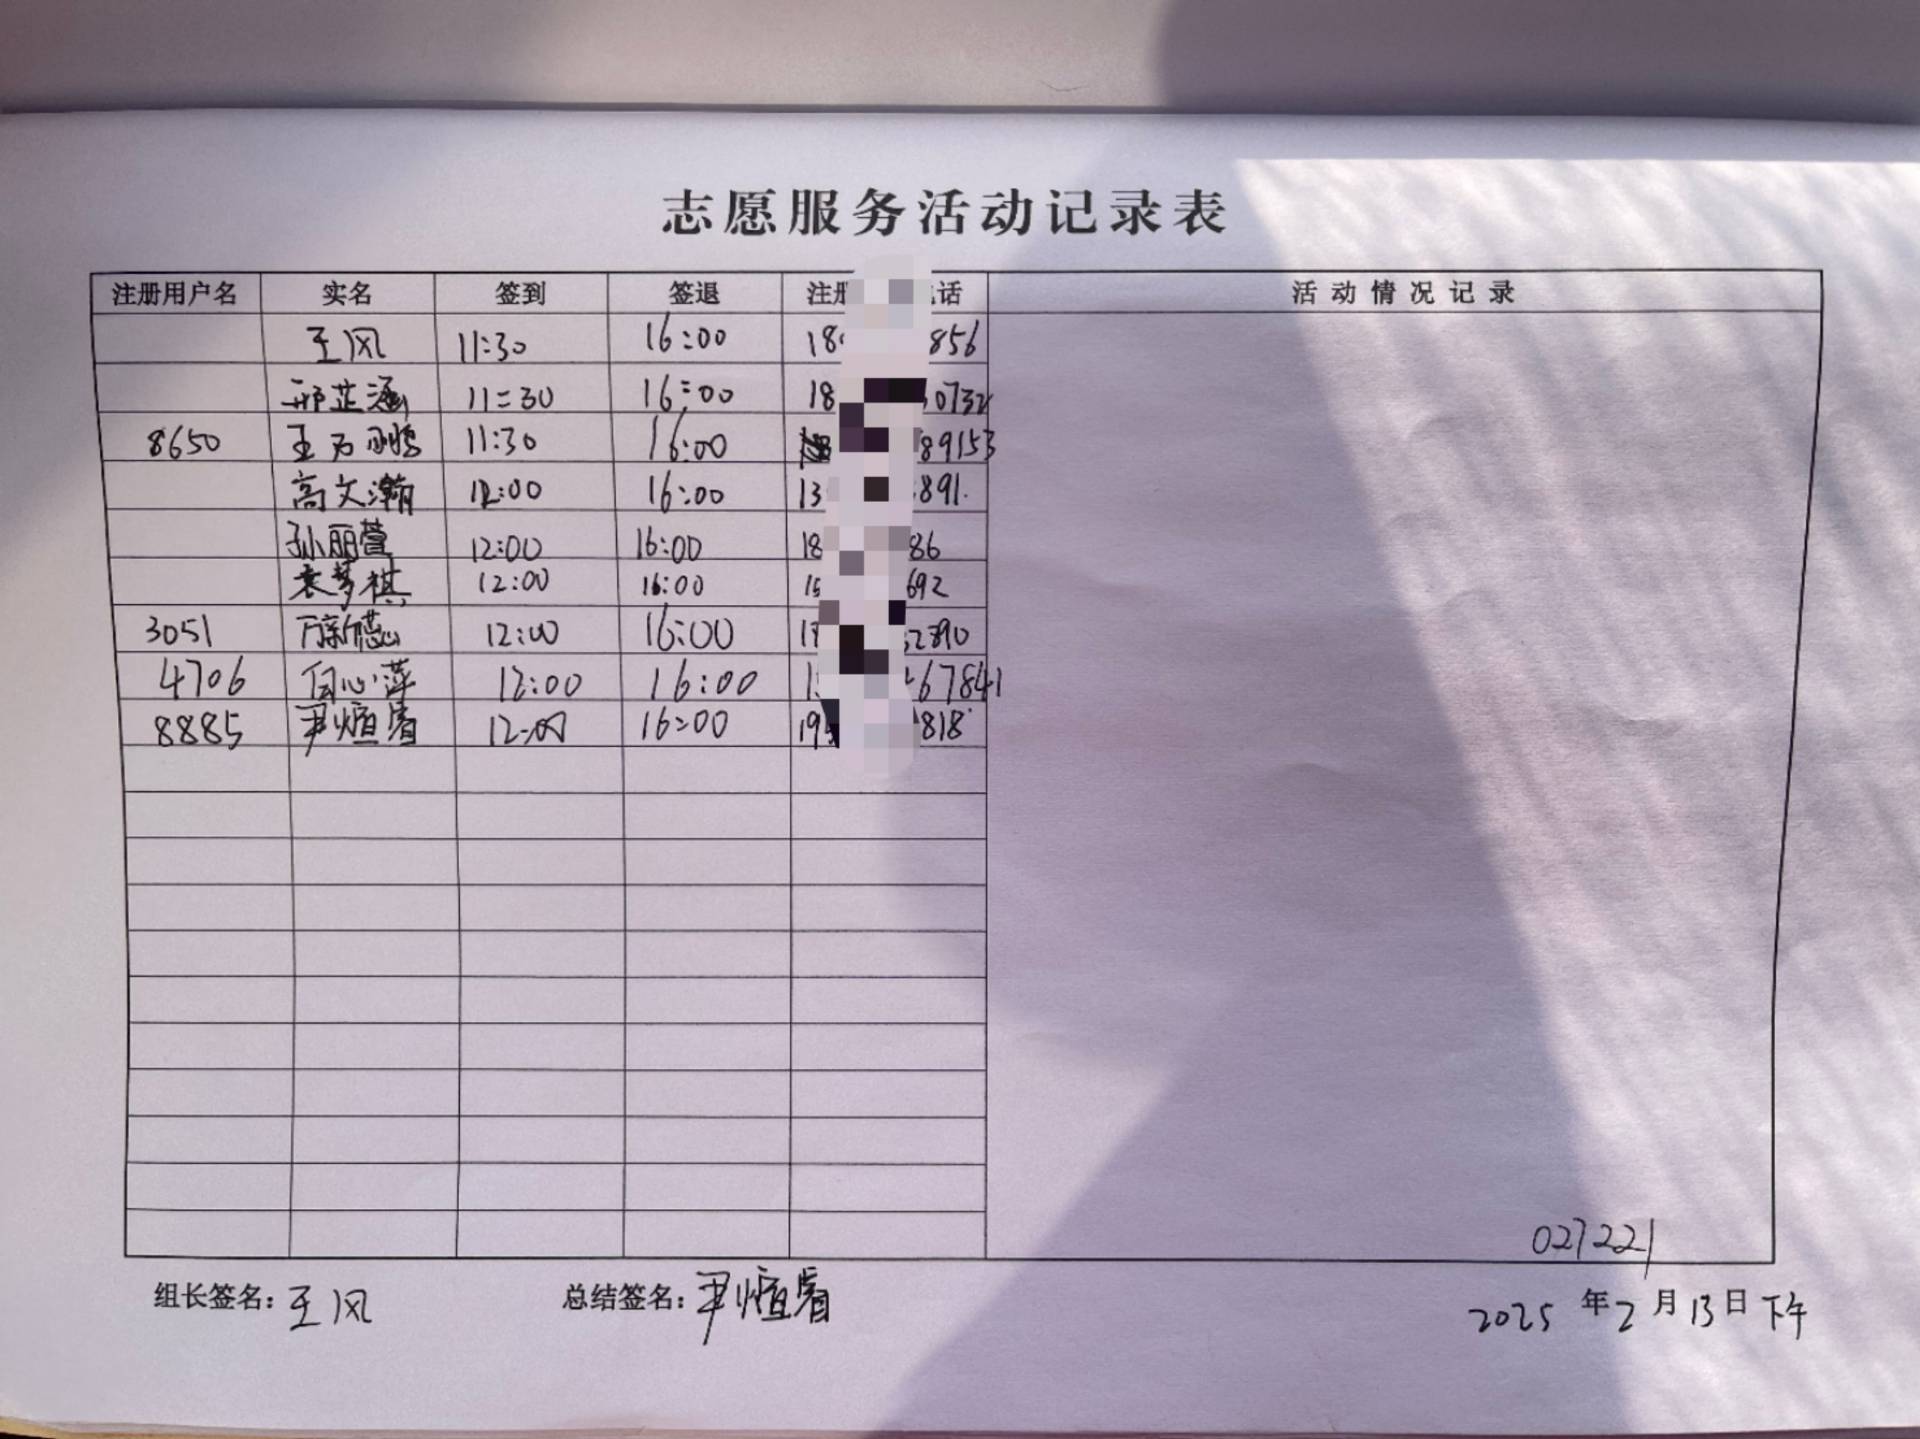 志愿服务活动记录表
注册用户名 实名 签到 签退 注册 话 活动情况记录
王风 11:30 16:00 18 856
邢芷涵 11:30 16:00 18 0732
8650 王 11:30 16:00 89153
高文瀚 12:00 16:00 13 891
孙丽萱 12:00 16:00 18 86
袁梦祺 12:00 16:00 15 692
3051 万新蕊 12:00 16:00 18 2890
4706 白心萍 12:00 16:00 1 67841
8885 尹煊睿 12:00 16:00 19 818
027221
组长签名：王风 总结签名：尹煊睿 2025年2月13日下午